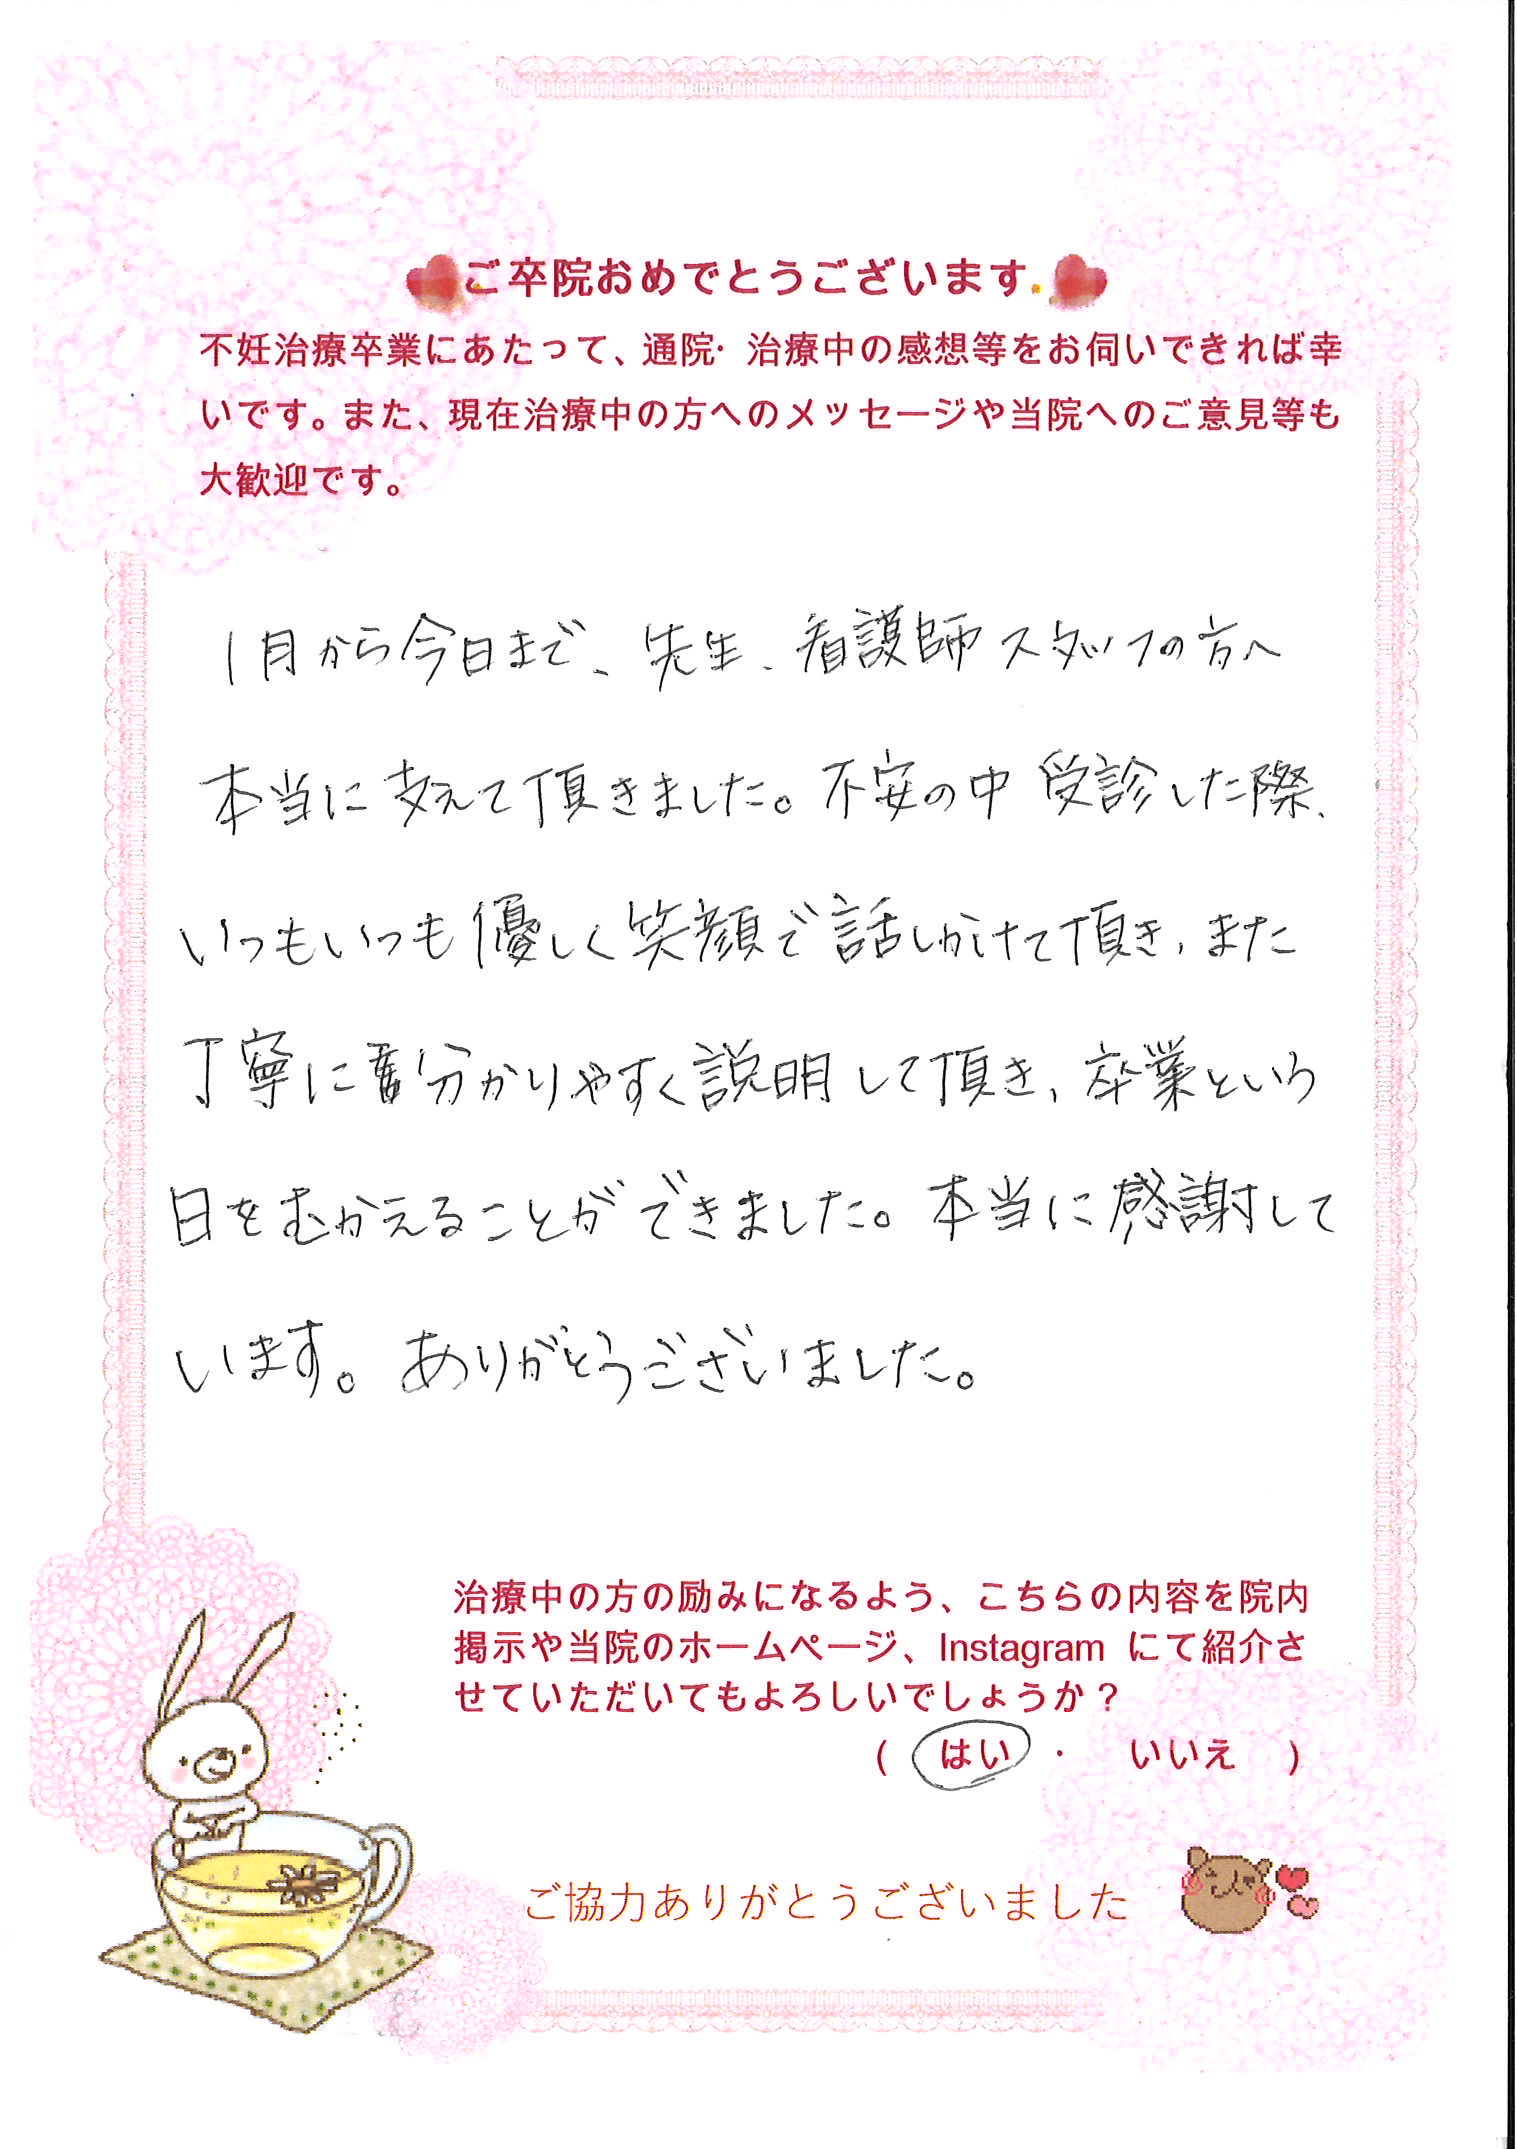 ご卒院おめでとうございます。
不妊治療卒業にあたって、通院・治療中の感想等をお伺いできれば幸
いです。また、現在治療中の方へのメッセージや当院へのご意見等も
大歓迎です。
1月から今日まで、先生、看護師スタッフの方へ
本当に支えて頂きました。不安の中受診した際、
いつもいつも優しく笑顔で話しかけて頂き、また
丁寧に分かりやすく説明して頂き、卒業という
日をむかえることができました。本当に感謝して
います。ありがとうございました。
治療中の方の励みになるよう、こちらの内容を院内
掲示や当院のホームページ、Instagram にて紹介さ
せていただいてもよろしいでしょうか?
( はい ・ いいえ )
ご協力ありがとうございました